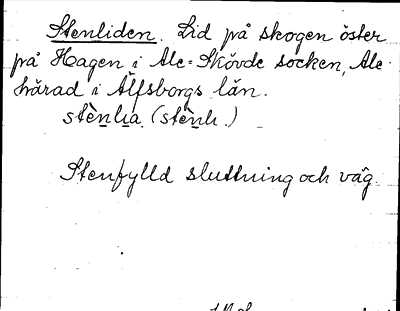 Stenliden. Lid på skogen öster
på Hagen i Ale-Skövde socken, Ale
härad i Älfsborgs län.
stènlia (stènli.)
Stenfylld sluttning och väg